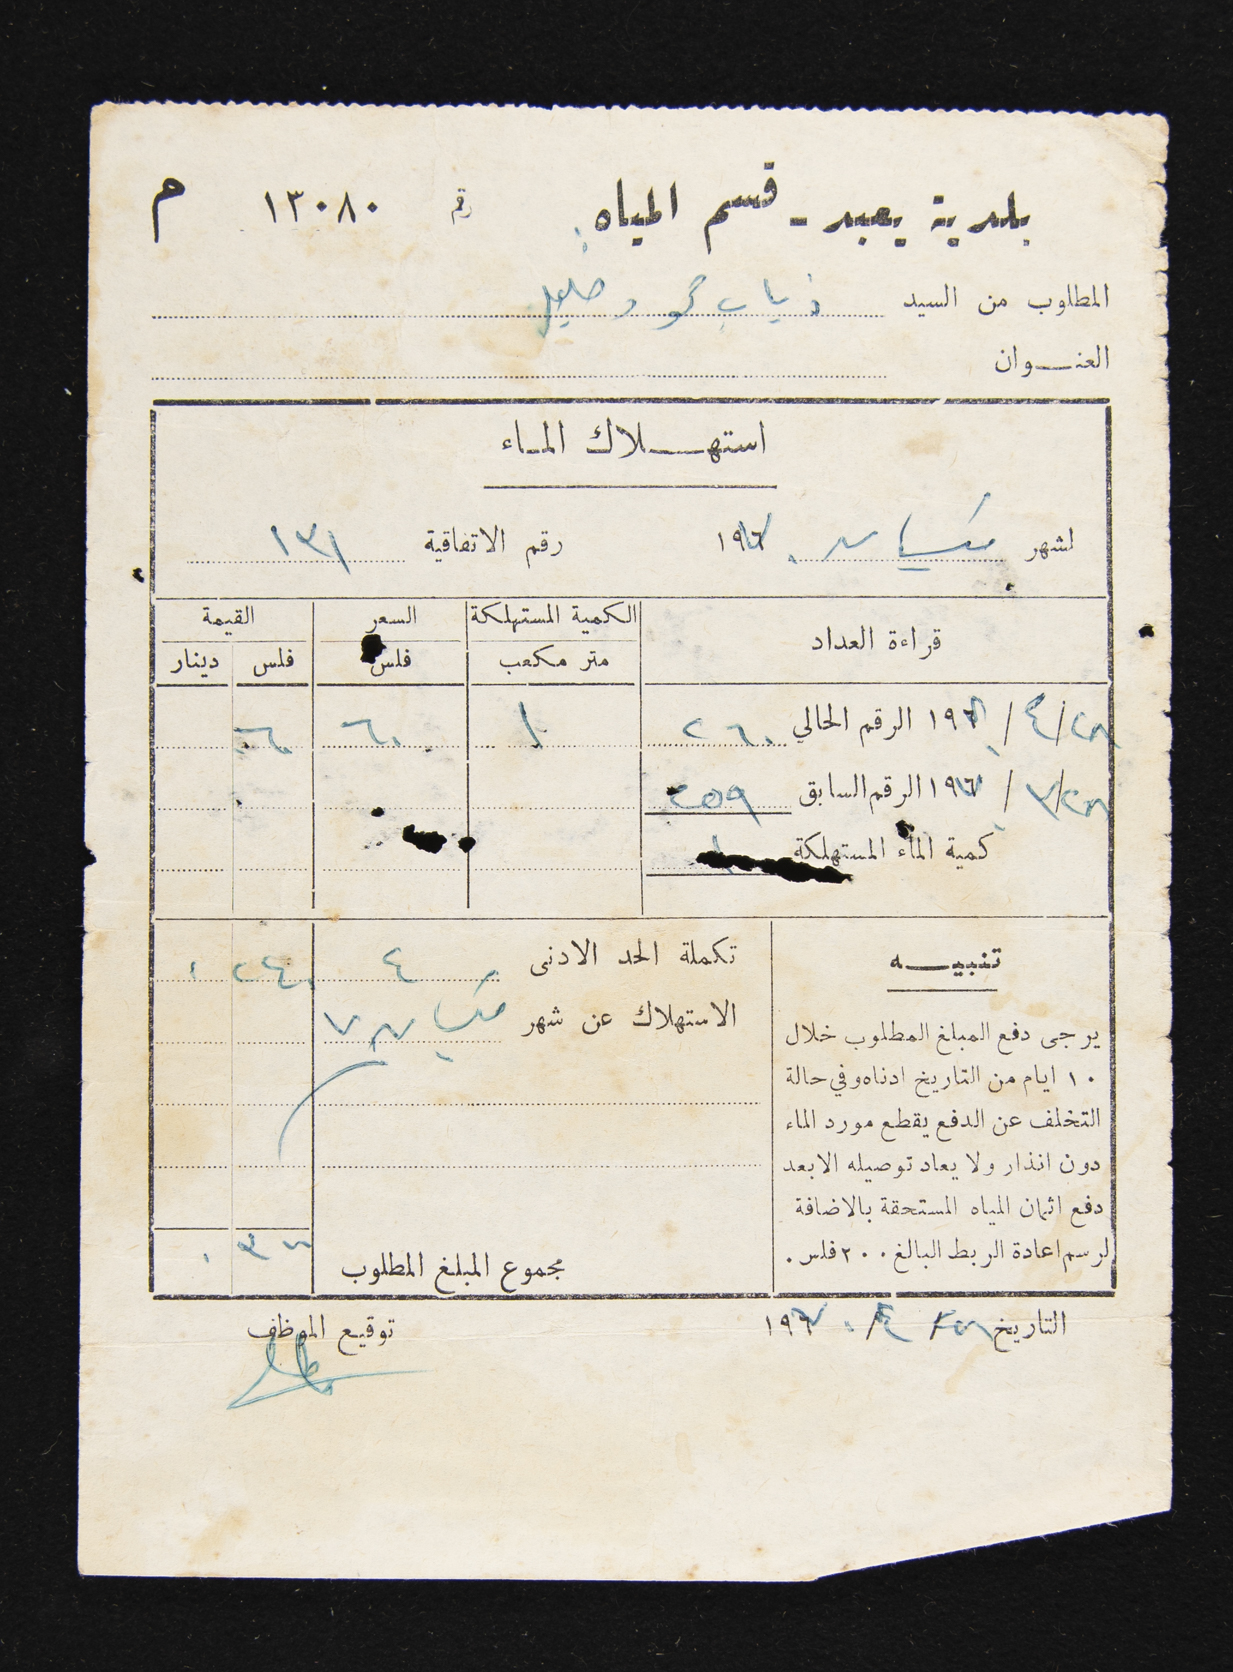 بلدية يعبد - قسم المياه رقم ١٣٠٨٠ م
المطلوب من السيد ذياب محمود خليل
العنــوان
استهــلاك المـاء
لشهر نيسان ١٩٦٧ رقم الاتفاقية ١٣١
قراءة العداد الكمية المستهلكة السعر القيمة
متر مكعب فلس فلس دينار
٢٨/٤/١٩٦٧ الرقم الحالي ٢٦٠ ١ ٦٠ ٦٠
٢٨/٣/١٩٦٧ الرقم السابق ٢٥٩
كمية الماء المستهلكة ١
تكملة الحد الادنى ٤ ٢٤٠
الاستهلاك عن شهر نيسان ٦٧
مجموع المبلغ المطلوب ٣٠٠
تنبيــه
يرجى دفع المبلغ المطلوب خلال
١٠ ايام من التاريخ ادناه وفي حالة
التخلف عن الدفع يقطع مورد الماء
دون انذار ولا يعاد توصيله الا بعد
دفع اثمان المياه المستحقة بالاضافة
لرسم اعادة الربط البالغ ٢٠٠ فلس.
التاريخ ٢٨/٤/١٩٦٧ توقيع الموظف